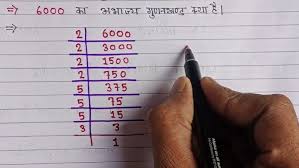 ⇒ 6000 का अभाज्य गुणनखण्ड क्या है।
⇒ 2 6000
2 3000
2 1500
2 750
5 375
5 75
5 15
3 3
1